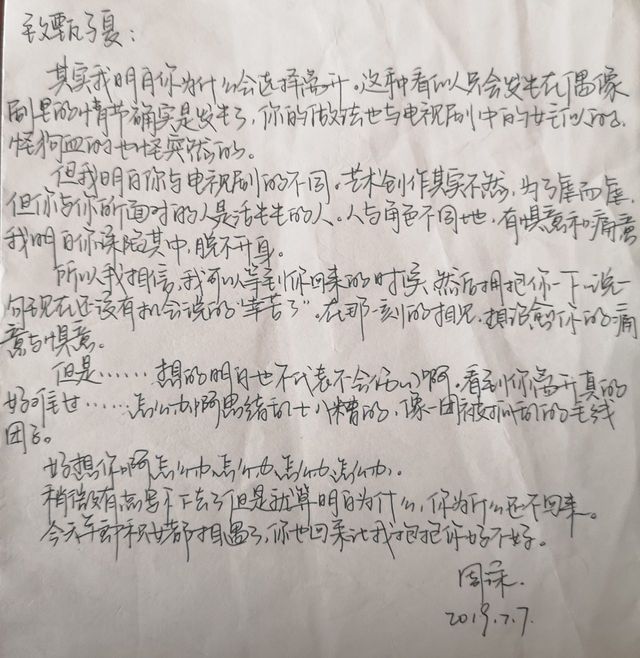 致甄子夏：
其实我明白你为什么会选择离开。这种看似只会发生在偶像
剧里的情节确实是发生了，你的做法也与电视剧中的女主似的。
怪狗血的也怪突然的。
但我明白你与电视剧的不同。艺术创作其实不然，为了虐而虐，
但你与你所面对的人是活生生的人。人与角色不同地，有惧意和痛意
我明白你深陷其中，脱不开身。
所以我相信，我可以等到你回来的时候，然后拥抱你一下，说一
句现在还没有机会说的“辛苦了”。在那一刻的相见，想治愈你的痛
意与惧意。
但是……想的明白也不代表不会伤心啊。看到你离开真的
好难过……怎么办啊思绪乱七八糟的，像一团被抓乱的毛线
团了。
好想你啊怎么办怎么办怎么办怎么办。
稍微有点写不下去了但是就算明白为什么，你为什么还不回来。
今天牛郎和织女都相遇了，你也回来让我抱抱你好不好。
周深.
2019.7.7.